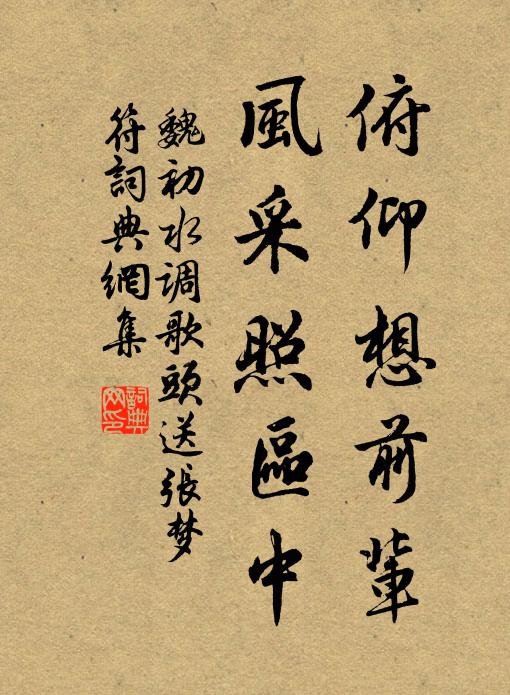 俯仰想前輩
風采照區中
魏初水调歌頭送張梦
符詞典網集
詞典网印